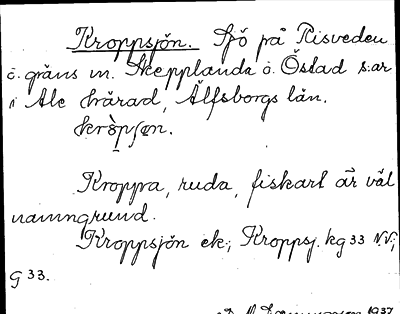 Kroppsjön. Sjö på Risveden
o. gräns m. Skepplanda o. Östad s:ar
i Ale härad, Älfsborgs län.
Kroppa, ruda, fiskart är väl
namngrund.
Kroppsjön ek; Kroppsj. kg 33 NV;
G 33.
1937